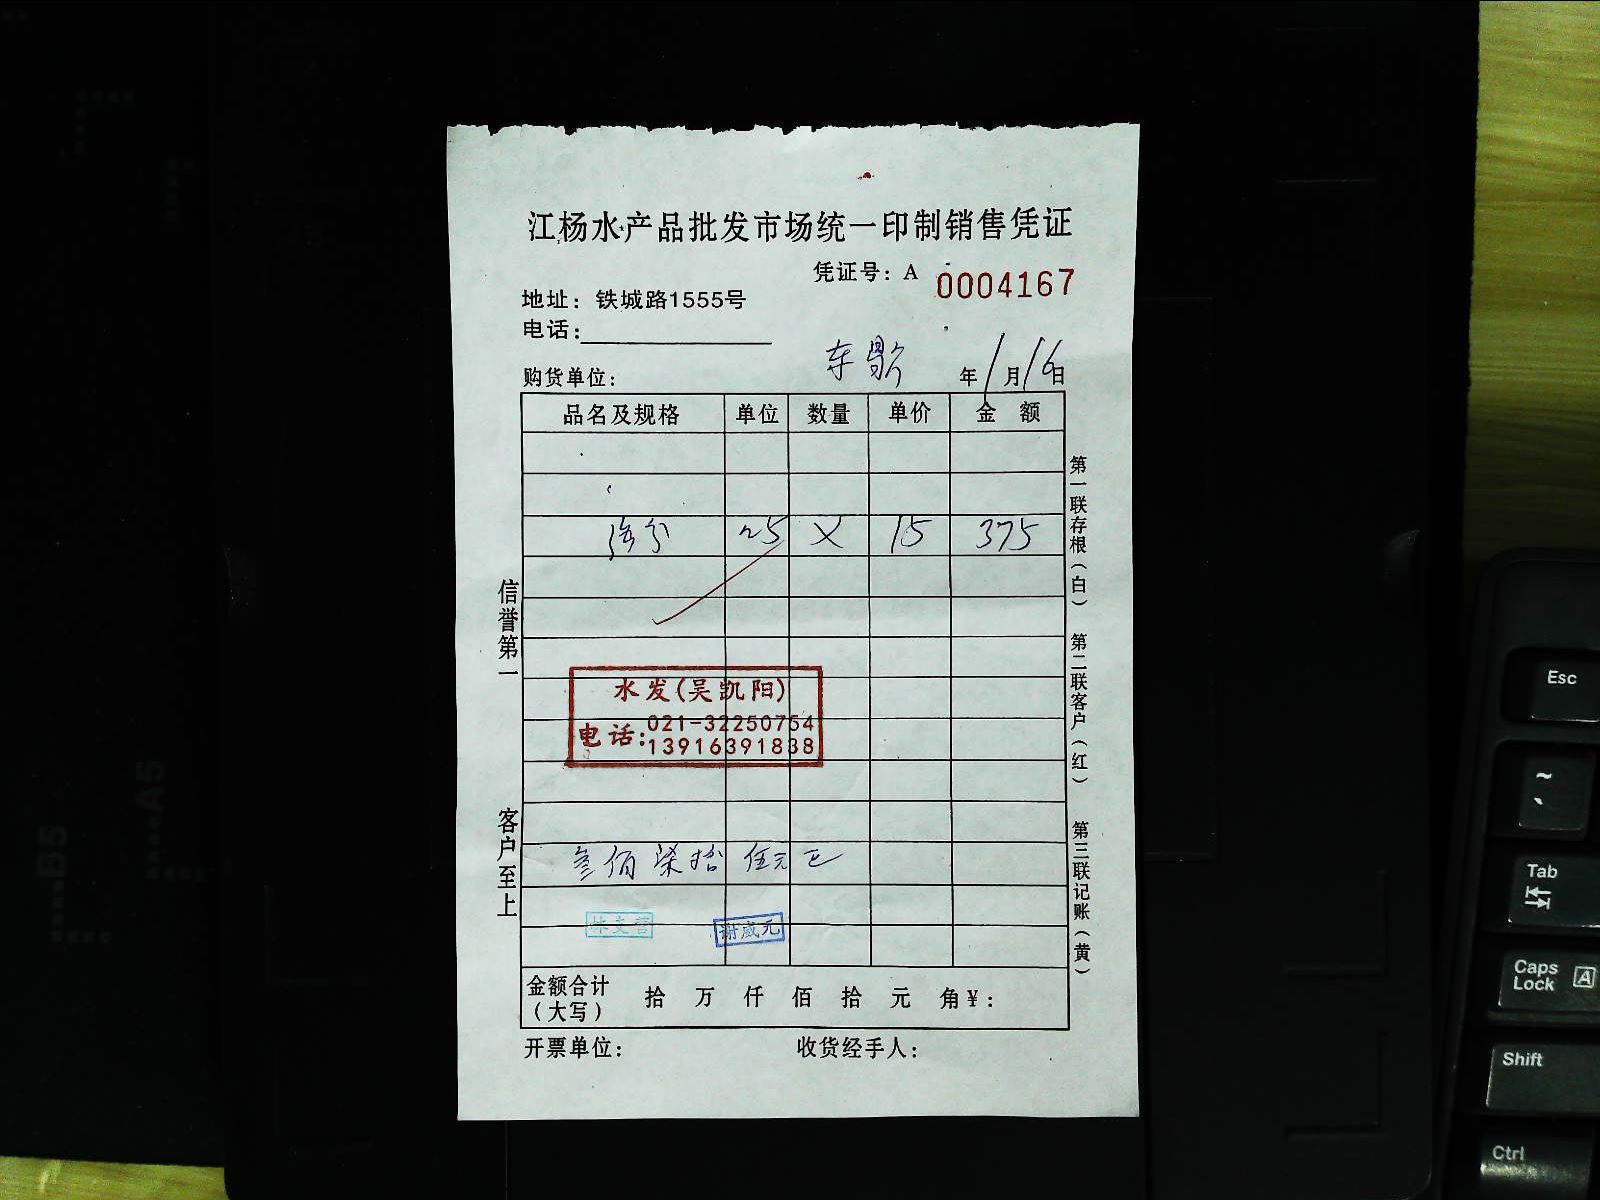 江杨水产品批发市场统一印制销售凭证
凭证号：A 0004167
地址：铁城路1555号
电话：
购货单位：
年1月16日
品名及规格 单位 数量 单价 金额
25 X 15 375
水发(吴凯阳)
电话：021-32250754
13916391838
叁佰柒拾 伍元正
谢咸元
金额合计（大写） 拾 万 仟 佰 拾 元 角￥：
开票单位： 收货经手人：
信誉第一
客户至上
第一联存根（白） 第二联客户（红） 第三联记账（黄）
B5
A5
Esc
~
`
Tab
Caps Lock A
Shift
Ctrl